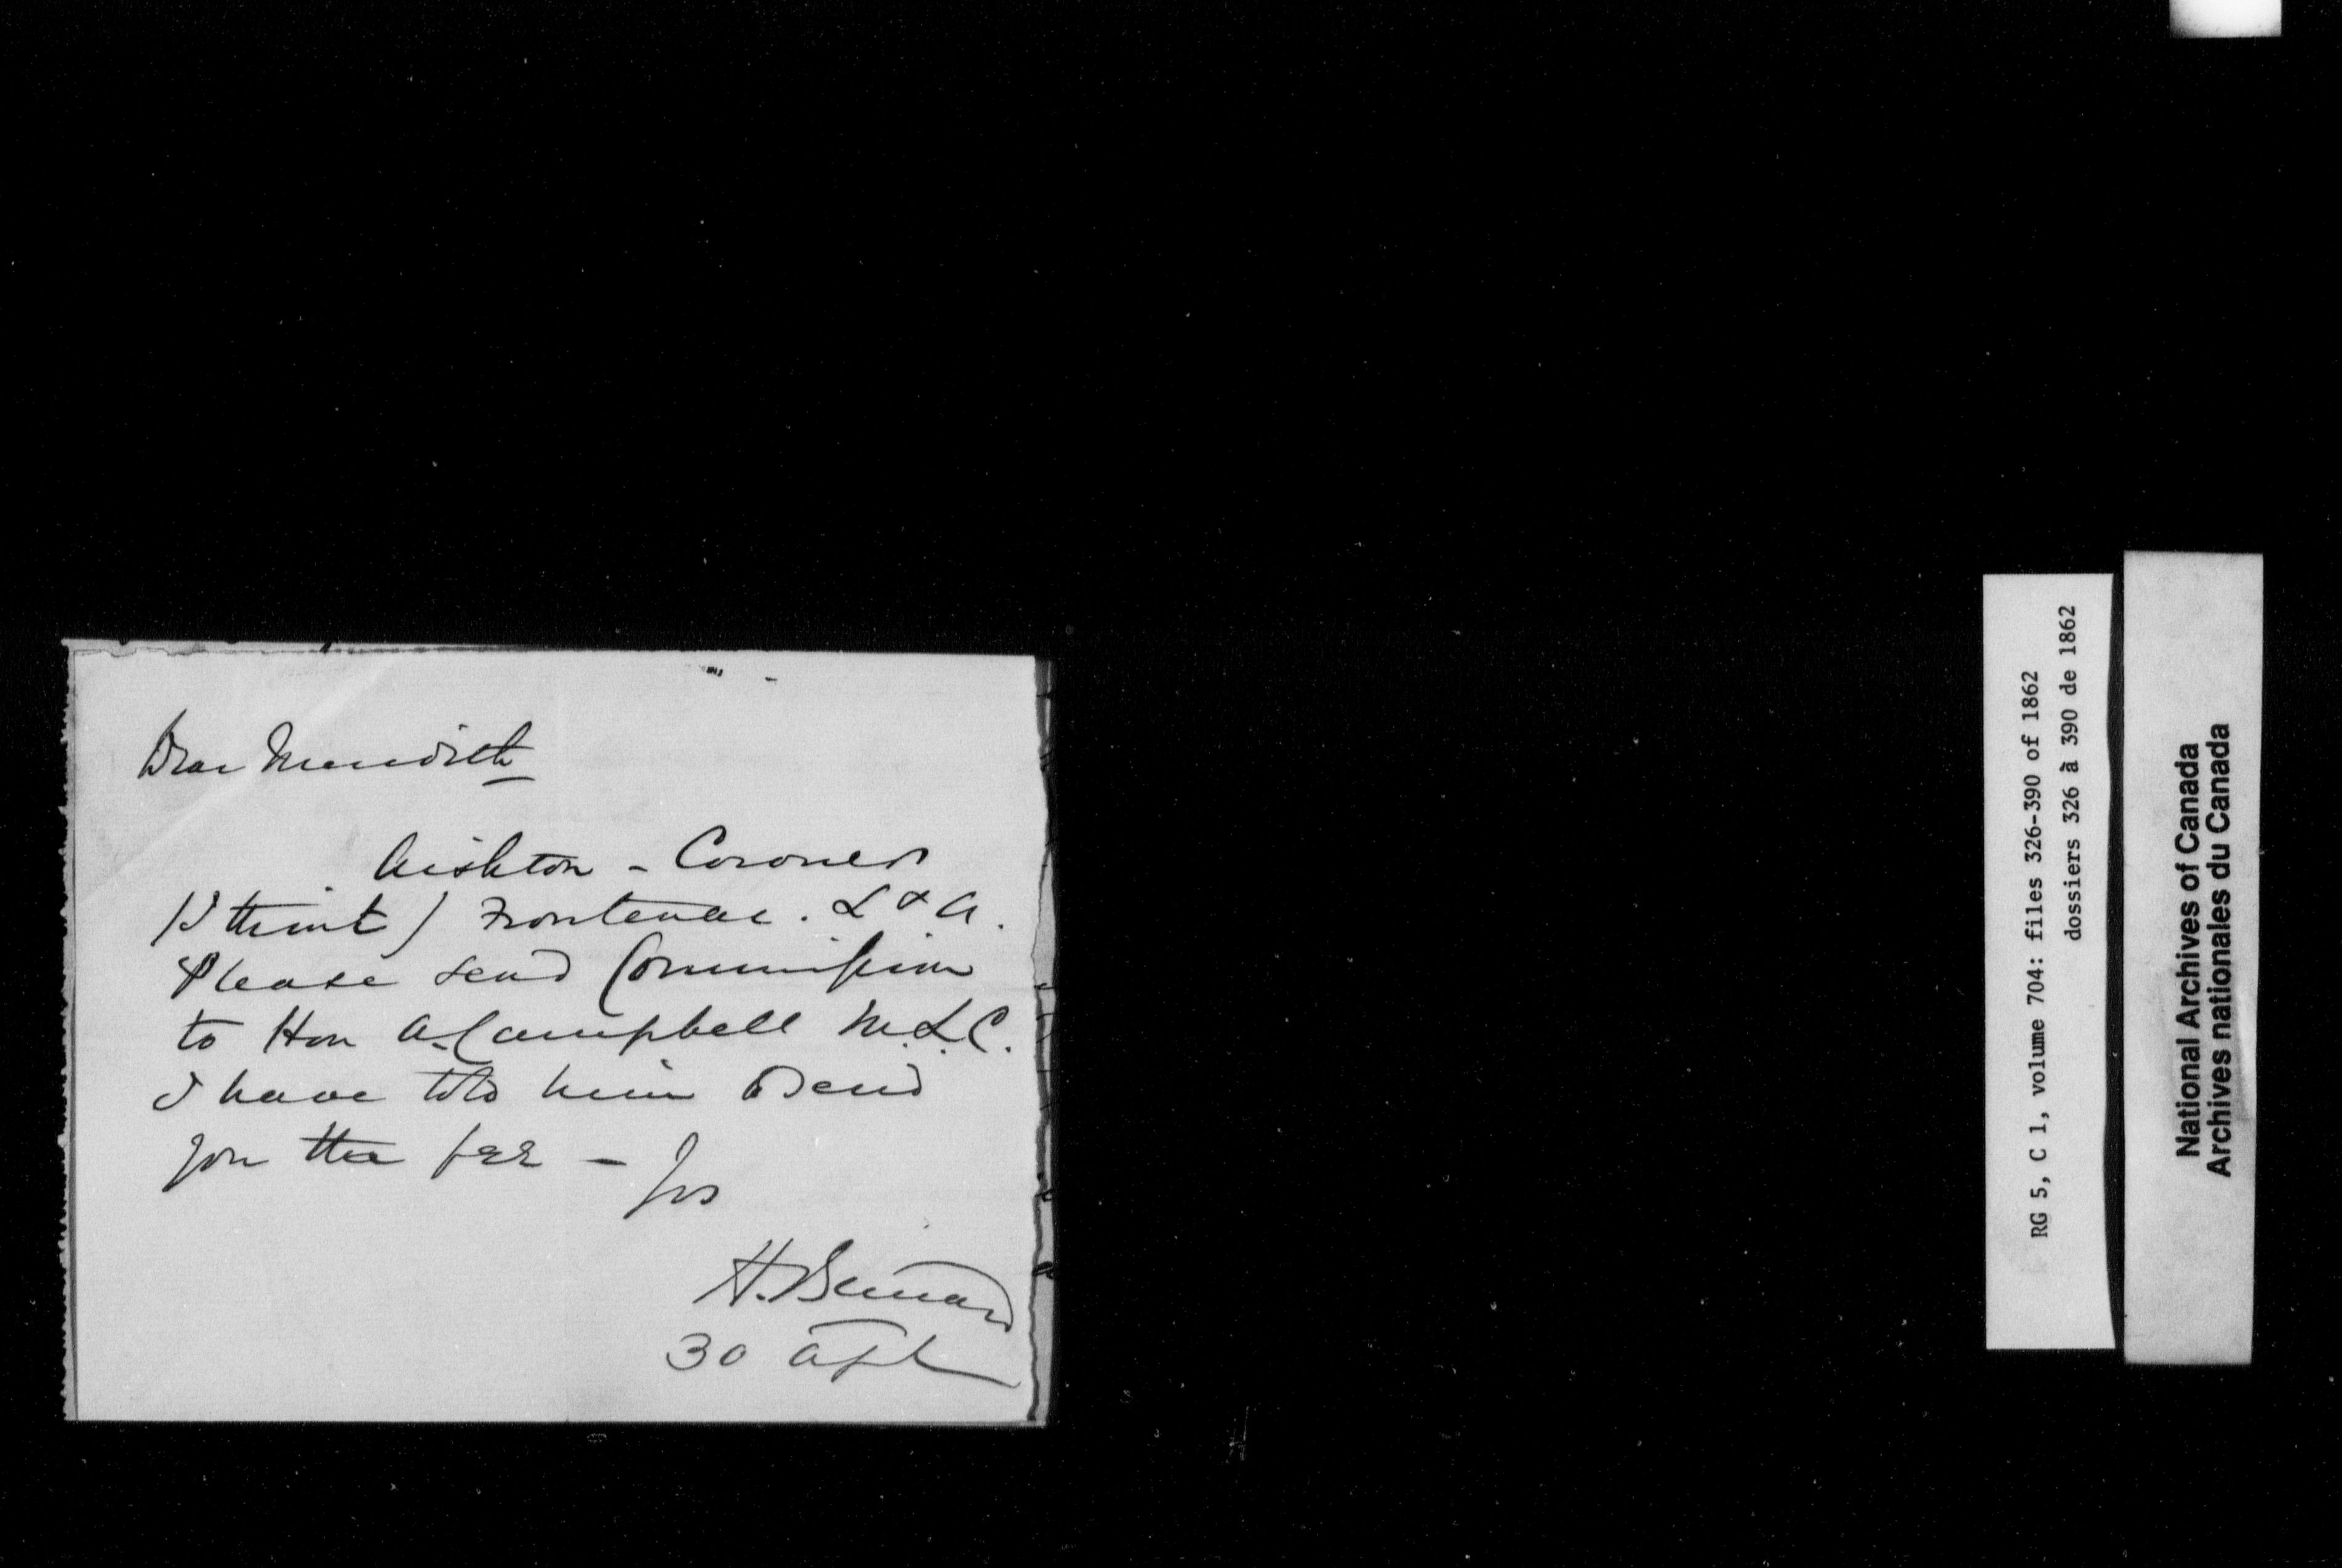 Dear Meredith
Aishton - Coroner
(I think) Frontenac. L & A.
Please send Commission
to Hon A. Campbell M.L.C.
I have told him to send
you the fee - Yrs
H. Bernard
30 Apl
RG 5, C 1, volume 704: files 326-390 of 1862
dossiers 326 à 390 de 1862
National Archives of Canada
Archives nationales du Canada